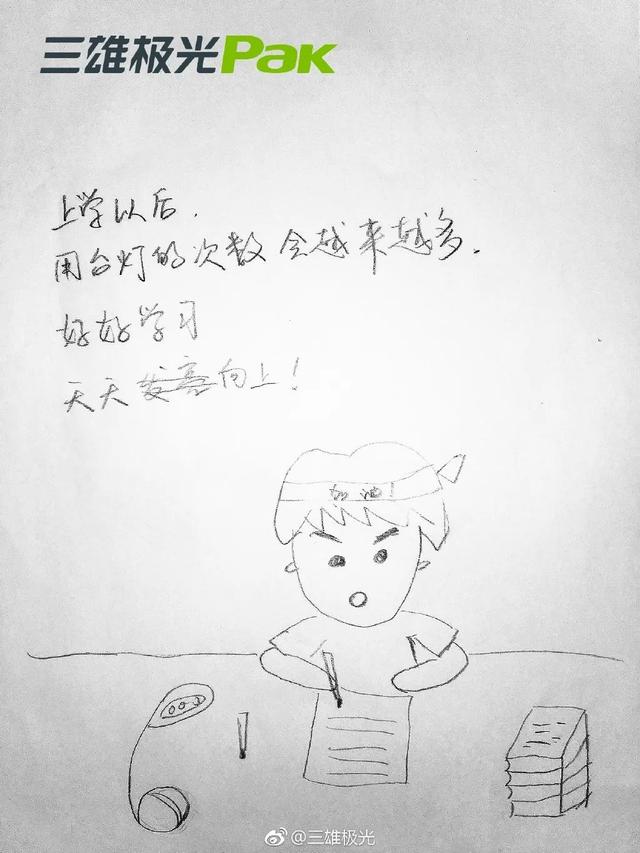 三雄极光Pak
上学以后，
用台灯的次数会越来越多。
好好学习
天天发亮向上！
加油！
@三雄极光